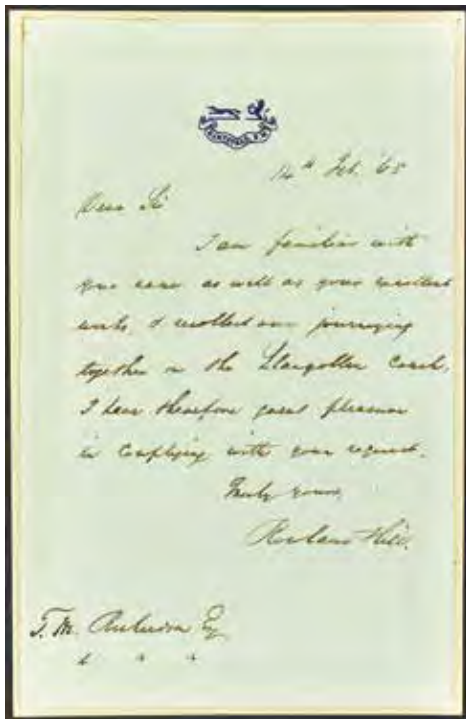 14th Feb. '65
Dear Sir
I am familiar with
your name as well as your excellent
works, I recollect our journeying
together in the Llangollen Coach,
I have therefore great pleasure
in complying with your request.
Truly yours,
Rowland Hill.
T. M.